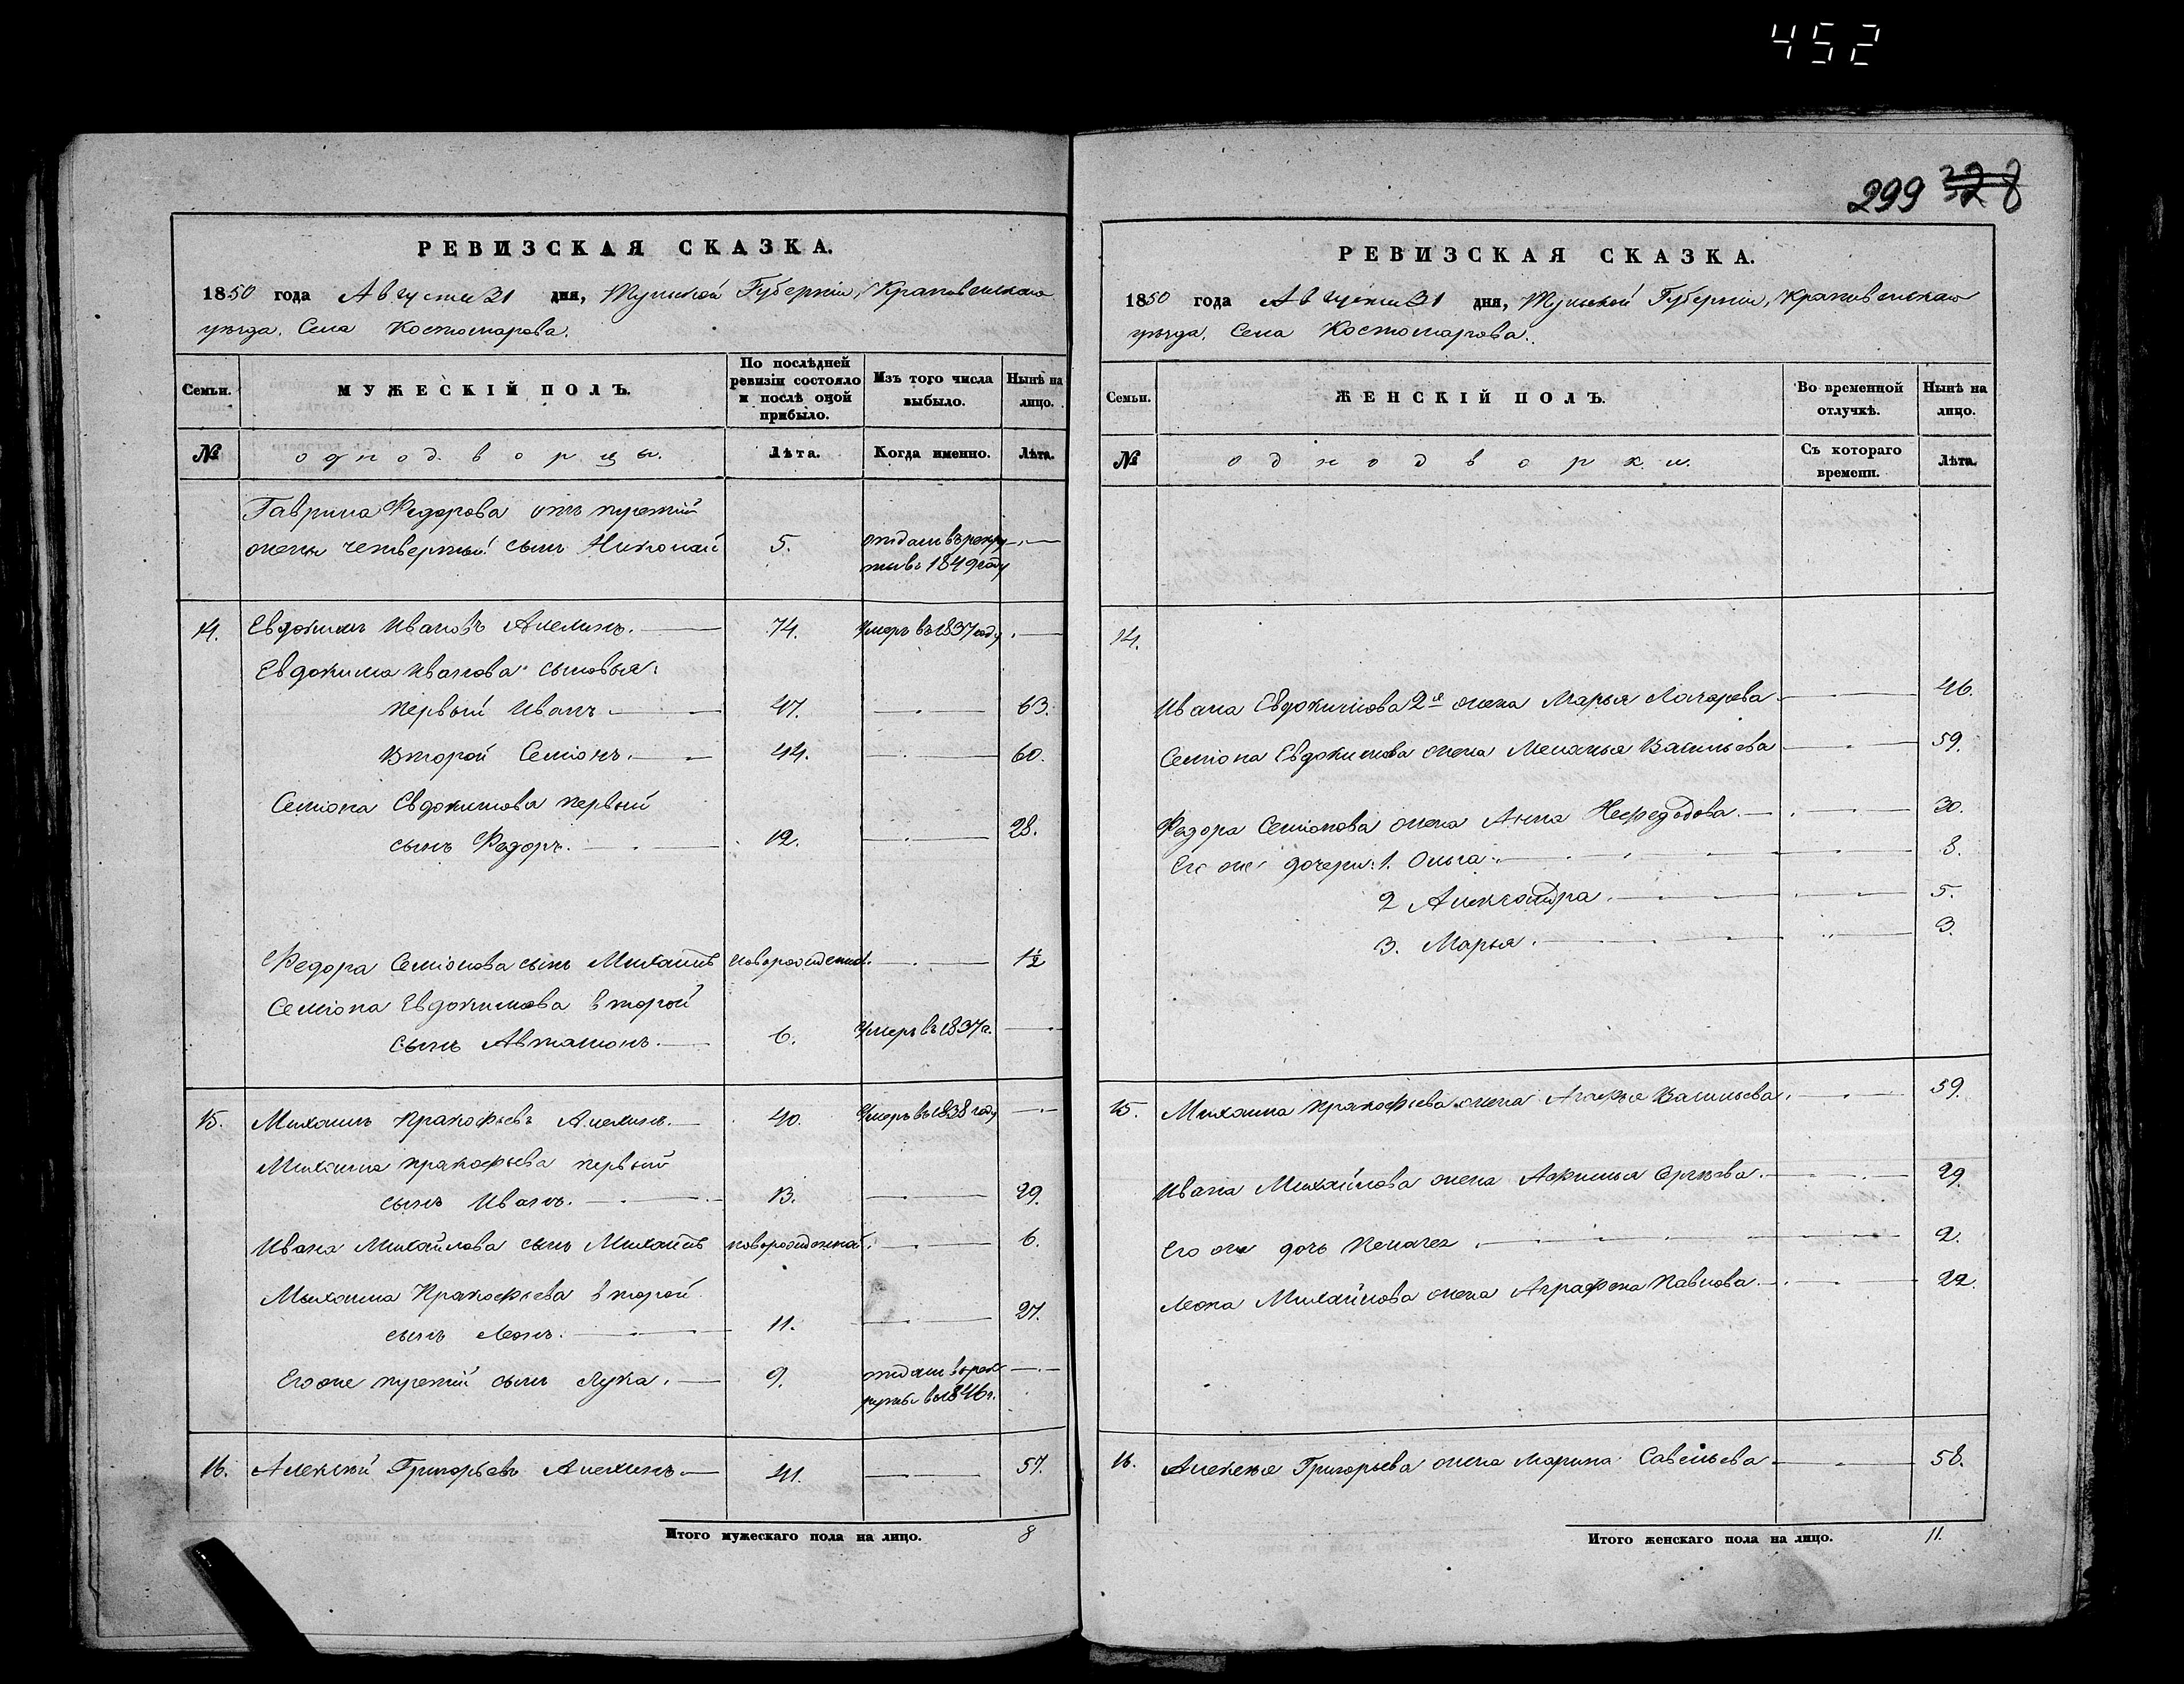 452
299 328
РЕВИЗСКАЯ СКАЗКА.
1850 года Августа 31 дня, Тульской Губерніи, Крапивенскаго
уѣзда. Села Костомарова.
Семьи.
МУЖЕСКІЙ ПОЛЪ.
По послѣдней
ревизіи состояло
и послѣ оной
прибыло.
Изъ того числа
выбыло.
Нынѣ на
лицо.
№
однодворцы.
Лѣта.
Когда именно.
Лѣта.
Гаврила Федорова отъ третьей
жены четвертый сынъ Николай 5. отданъ въ рекру
ты въ 1849 году
14. Евдокимъ Ивановъ Алехинъ. 74. Умеръ въ 1837 году
Евдокима Иванова сыновья:
первый Иванъ 47. 63.
Второй Семіонъ. 44. 60.
Семіона Евдокимова первый
сынъ Федоръ. 12. 28.
Федора Семіонова сынъ Михаилъ новорожденный. 1½
Семіона Евдокимова второй
сынъ Автамонъ. 6. Умеръ въ 1837 г.
15. Михаилъ Пракофьевъ Алехинъ. 40. Умеръ въ 1838 году
Михаила Пракофьева первый
сынъ Иванъ. 13. 29.
Ивана Михайлова сынъ Михаилъ новорожденный. 6.
Михаила Пракофьева второй
сынъ Леонъ. 11. 27.
Его же третій сынъ Лука. 9. отданъ въ рек
руты въ 1846 г.
16. Алексѣй Григорьевъ Алехинъ 41. 57.
Итого мужескаго пола на лицо. 8
РЕВИЗСКАЯ СКАЗКА.
1850 года Августа 31 дня, Тульской Губерніи, Крапивенскаго
уѣзда. Села Костомарова.
Семьи.
ЖЕНСКІЙ ПОЛЪ.
Во временной
отлучкѣ.
Нынѣ на
лицо.
№
однодворки.
Съ котораго
времени.
Лѣта.
14.
Ивана Евдокимова 2я жена Марья Лазарева 46.
Семіона Евдокимова жена Меланья Васильева 59.
Федора Семіонова жена Анна Нефедова. 30.
Его же дочери: 1. Ольга. 8.
2 Александра. 5.
3. Марья. 3.
15. Михаила Пракофьева жена Агафья Васильева. 59.
Ивана Михайлова жена Акулина 29.
Его же дочь Пелагея. 2.
Леона Михайлова жена Аграфена Павлова. 22.
16. Алексѣя Григорьева жена Марина Савельева 58.
Итого женскаго пола на лицо. 11.